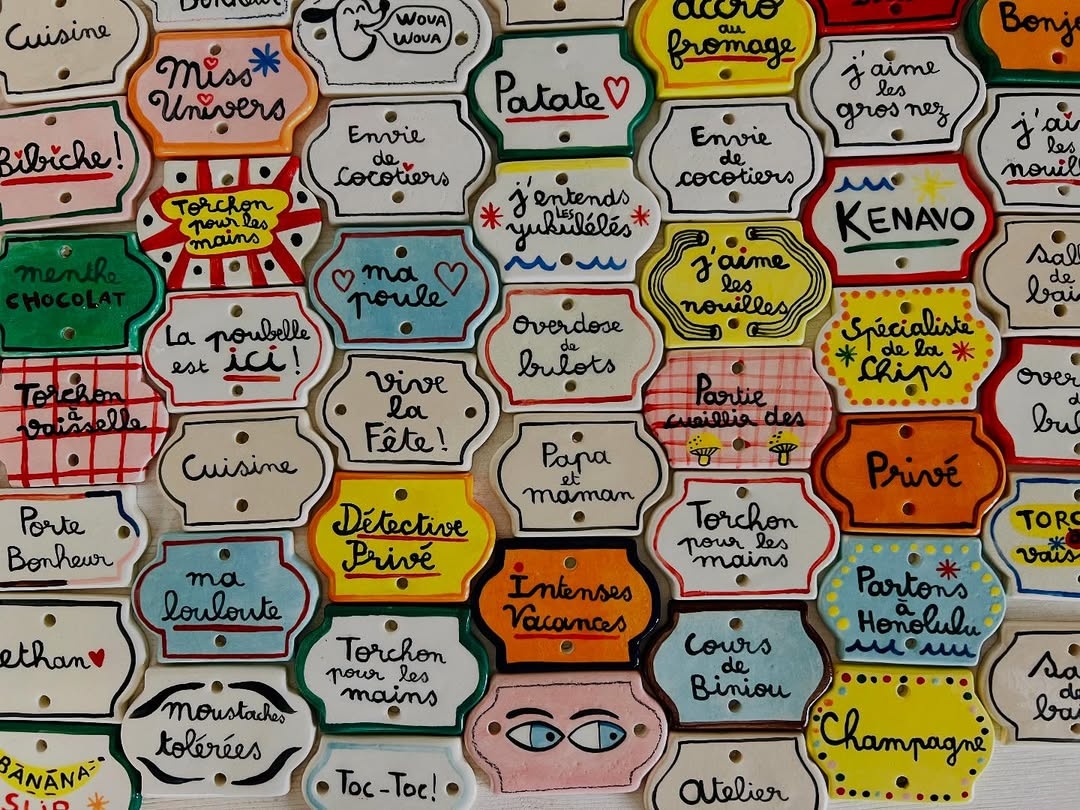 Cuisine
Bonheur
WOVA
WOVA
accro
au
fromage
Miss
Univers
Patate
j'aime
les
gros nez
Bibiche!
Envie
de
cocotiers
Envie
de
cocotiers
Torchon
pour les
mains
j'entends
LES
yukulélés
KENAVO
menthe
CHOCOLAT
ma
poule
j'aime
les
nouilles
La poubelle
est ici!
Overdose
de
bulots
Spécialiste
de la
Chips
Torchon
à
vaisselle
Vive
la
Fête!
Partie
cueillir des
Cuisine
Papa
et
maman
Privé
Porte
Bonheur
Détective
Privé
Torchon
pour les
mains
ma
louloute
Intenses
Vacances
Partons
à
Honolulu
Torchon
pour les
mains
Cours
de
Biniou
moustaches
tolérées
Champagne
BANANA
SLIP
Toc-Toc!
Atelier